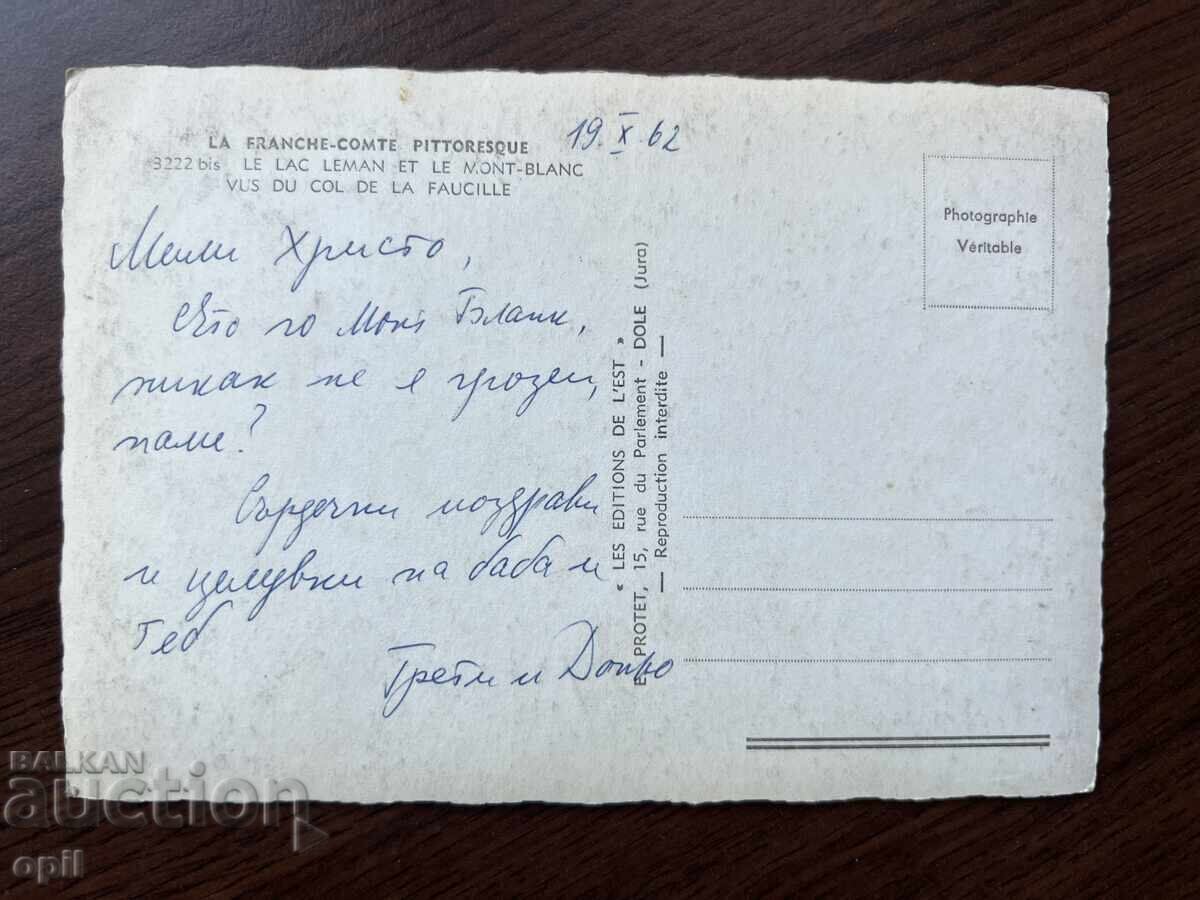 LA FRANCHE-COMTE PITTORESQUE
3222 bis LE LAC LEMAN ET LE MONT-BLANC
VUS DU COL DE LA FAUCILLE
19.X.62
Мили Христо,
Ето го Мон Бланк,
никак не е грозен,
нали?
Сърдечни поздрави
и целувки на баба и
теб
Грети и
« LES EDITIONS DE L'EST »
PROTET, 15, rue du Parlement - DOLE (Jura)
— Reproduction interdite —
Photographie
Véritable
BALKAN
auction
opil